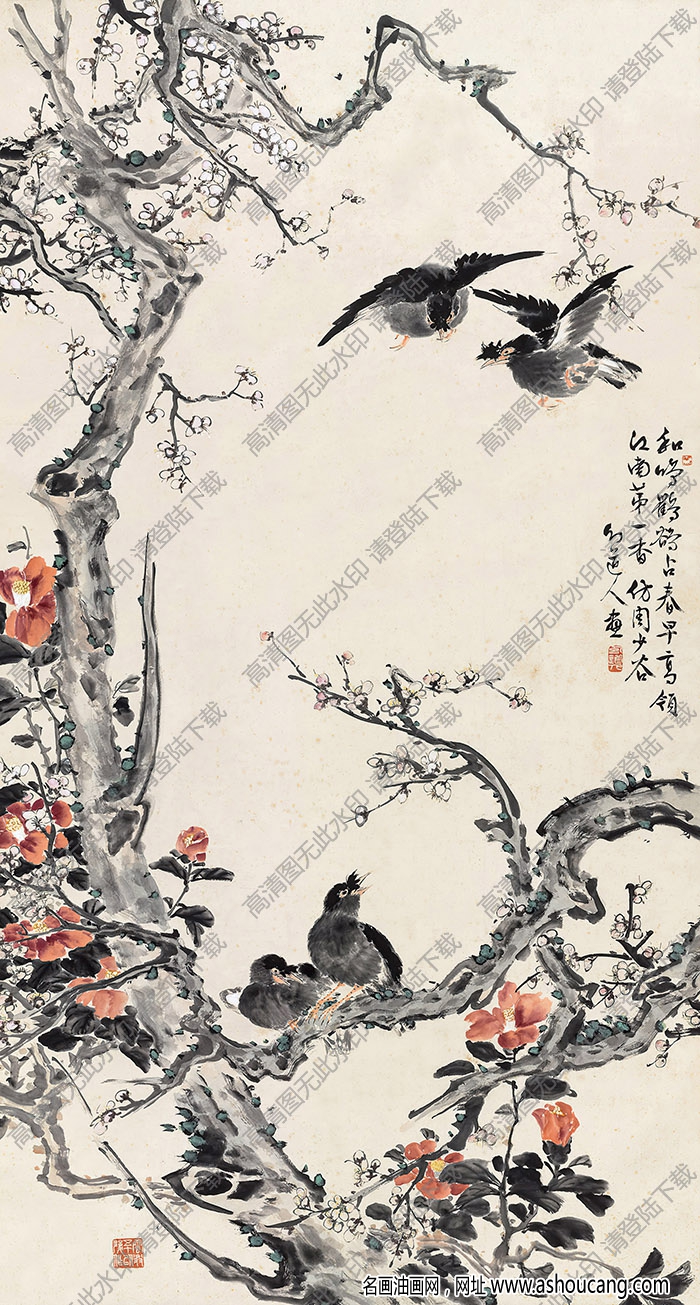 和鸣鸜鹆占春早高领
江南第一香仿周少谷
道人画
高清图无此水印 请登陆下载
名画油画网，网址 www.ashoucang.com